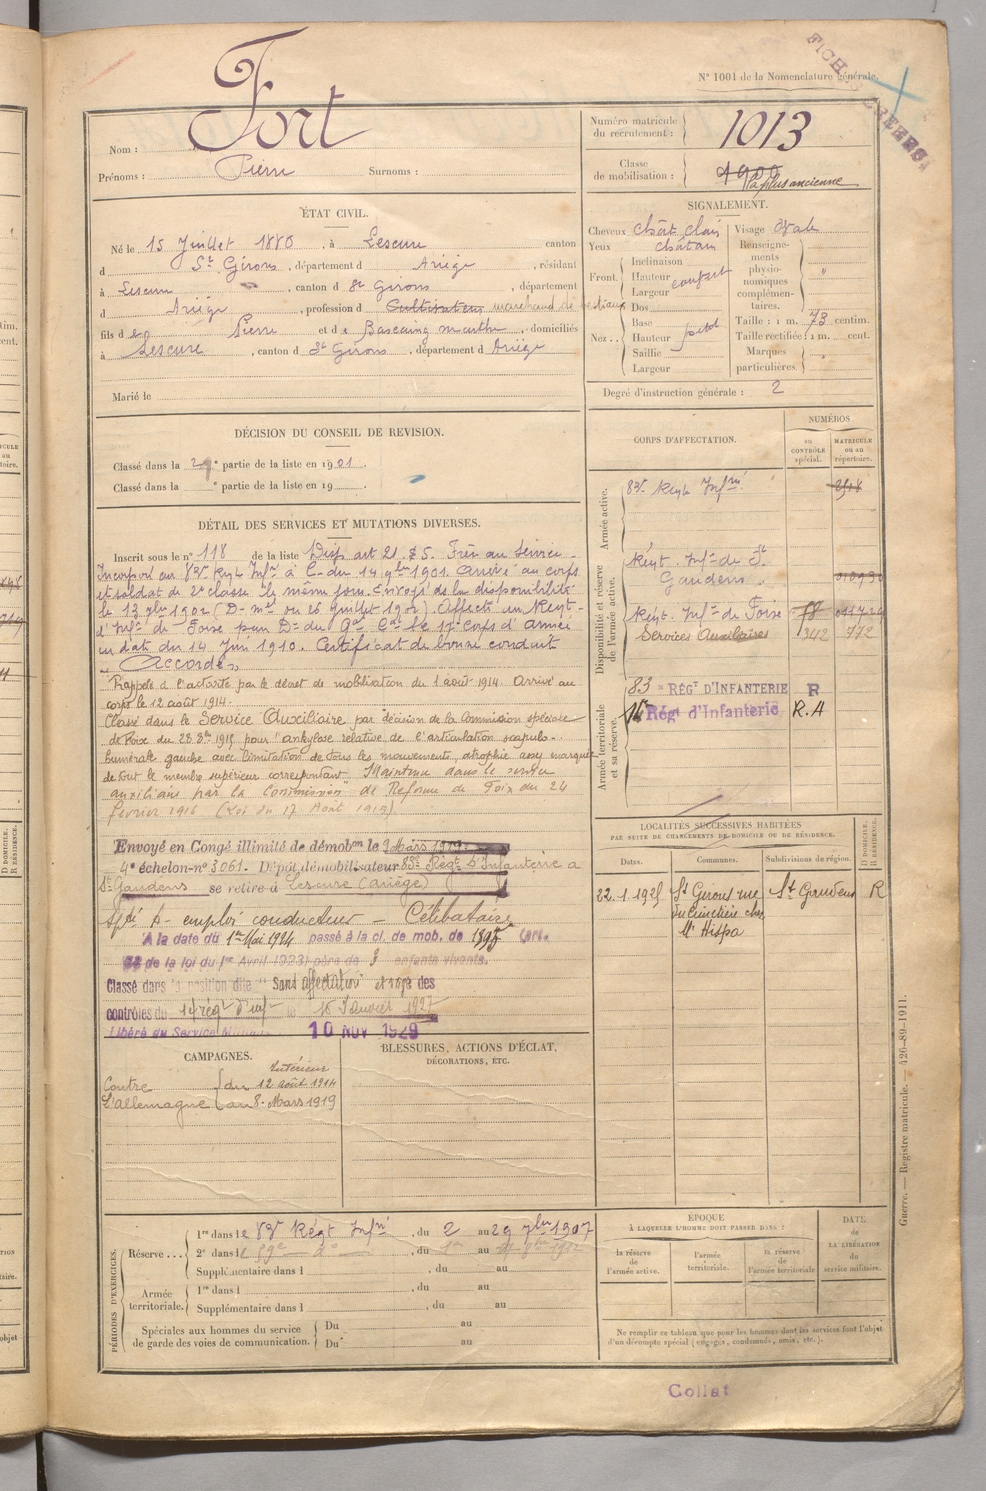 N° 1001 de la Nomenclature générale.
Nom : Fort
Prénoms : Pierre Surnoms :
Numéro matricule du recrutement : 1013
Classe de mobilisation : 1900
la plus ancienne
ÉTAT CIVIL.
Né le 15 Juillet 1880, à Lescure canton
d St Girons, département d Ariège, résidant
à Lescure, canton d St Girons, département
d Ariège, profession d Cultivateur marchand de bestiaux
fils de Pierre et de Bascaing Marthe, domiciliés
à Lescure, canton d St Girons, département d Ariège
Marié le
SIGNALEMENT.
Cheveux chât clair
Yeux châtain
Front. Inclinaison
Hauteur
Largeur
Nez.. Dos
Base
Hauteur
Saillie
Largeur
Visage ovale
Renseignements physionomiques complémentaires. "
Taille : 1 m. 73 centim.
Taille rectifiée : 1 m. cent.
Marques particulières. "
Degré d'instruction générale : 2
DÉCISION DU CONSEIL DE REVISION.
Classé dans la 2e partie de la liste en 1901.
Classé dans la e partie de la liste en 19
DÉTAIL DES SERVICES ET MUTATIONS DIVERSES.
Inscrit sous le n° 118 de la liste Disp. art 21 § 5. Frère au service
Incorporé au 83e Regt Infrie à C. du 14 9bre 1901. Arrivé au corps
et soldat de 2e classe le même jour. Envoyé de la disponibilité
le 13 7bre 1902 (D. mlle du 26 Juillet 1902). Affecté au Regt
d'Infie de Foix par Don du Gal Ct le 17e corps d'armée
en date du 14 Juin 1910. Certificat de bonne conduite
"Accordé"
Rappelé à l'activité par le décret de mobilisation du 1 août 1914. Arrivé au
corps le 12 août 1914.
Classé dans le Service Auxiliaire par décision de la Commission spéciale
de Foix du 28 8bre 1915 pour "ankylose relative de l'articulation scapulo-
humérale gauche avec limitation de tous les mouvements, atrophie assez marquée
de tout le membre supérieur correspondant". Maintenu dans le service
auxiliaire par la Commission de Réforme de Foix du 24
février 1916 (Loi du 17 Août 1915)
Envoyé en Congé illimité de démobon le 9 Mars 1919
4e échelon-n° 3061. Dépôt démobilisateur 83e Régt d'Infanterie à
St Gaudens se retire à Lescure (Ariège)
emploi conducteur - Célibataire
A la date du 1er Mai 1924 passé à la cl. de mob. de
de la loi du 1er Avril 1923) père de enfants vivants.
Classé dans la position dite "Sans affectation" et rayé des
contrôles du 14e régt d'inf le 16 Janvier 1927
Libéré du Service Militaire 10 NOV 1929
CORPS D'AFFECTATION.
NUMÉROS
au CONTRÔLE spécial.
MATRICULE ou au répertoire.
Armée active.
83e Regt Infrie
Disponibilité et réserve de l'armée active.
Regt. Infie de St Gaudens
Regt. Infie de Foix
Services Auxiliaires 342 772
Armée territoriale et sa réserve.
83e RÉGT D'INFANTERIE R
14e Régt d'Infanterie R.A
LOCALITÉS SUCCESSIVES HABITÉES
PAR SUITE DE CHANGEMENTS DE DOMICILE OU DE RÉSIDENCE.
Dates. Communes. Subdivisions de région. D DOMICILE. R RÉSIDENCE.
22.1.1925 St Girons rue St Gaudens R
du Cimetière chez
Mr Hispa
CAMPAGNES.
Intérieur
Contre l'Allemagne du 12 août 1914
au 8 Mars 1919
BLESSURES, ACTIONS D'ÉCLAT,
DÉCORATIONS, ETC.
PÉRIODES D'EXERCICES.
Réserve... 1re dans le 83e Régt Infrie, du 2 au 29 7bre 1907
2e dans le 59e do, du 1er au
Supplémentaire dans l , du au
Armée territoriale. 1re dans l , du au
Supplémentaire dans l , du au
Spéciales aux hommes du service de garde des voies de communication. Du au
Du au
ÉPOQUE
À LAQUELLE L'HOMME DOIT PASSER DANS :
la réserve de l'armée active.
l'armée territoriale.
la réserve de l'armée territoriale
DATE DE LA LIBÉRATION du service militaire.
Ne remplir ce tableau que pour les hommes dont les services font l'objet
d'un décompte spécial (engagés, condamnés, omis, etc.).
Guerre. — Registre matricule. — 426-89-1911.
Collat